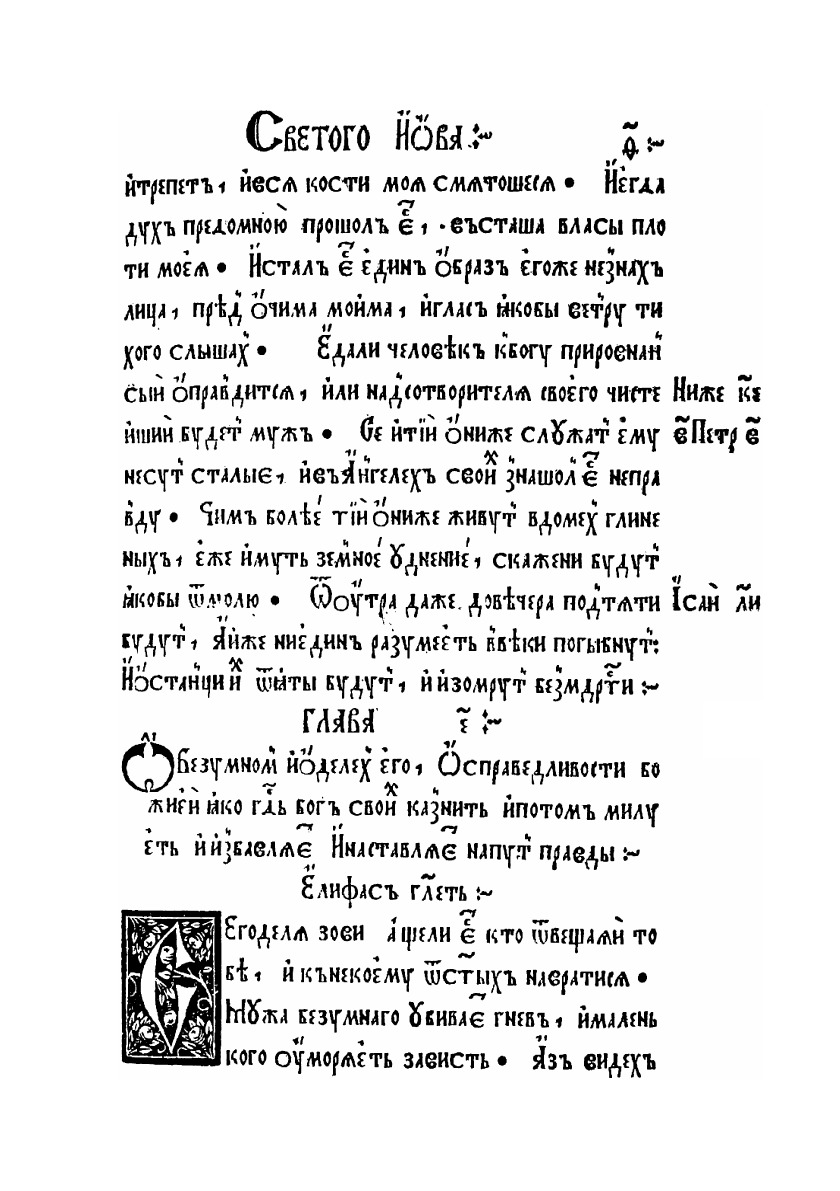 Светого Иѡва ѳ҃
итрепетъ, ивсѧ кости моѧ смѧтошесѧ • Иегда
духъ предомною прошолъ ес҃, въсташа власы пло
ти моеѧ • Исталъ ес҃ единъ ѡбразъ егоже незнахъ
лица, прѣд ѡчима моима, игласъ ꙗкобы ветру ти
хого слышах • Едали человѣкъ кбогу прировнан
сый ѡправдитсѧ, или надсотворителѧ своего чисте Ниже к҃е
иший будет мужъ • Се и тїи ѡниже служат ему в҃ Петр в҃
несут сталые, ивъАнгелехъ свои х знашол ес҃ непра
вду • Чимъ болѣе тїи ѡниже живут вдомех глине
ныхъ, еже имуть земное уднение, скажени будут
ꙗкобы ѿмолю • Ѿоутра даже довѣчера подтѧти Ісаи л҃и
будут, Аиже ниединъ разумееть ввѣки погыбнут:
Иѡстанции х ѿꙗты будут, и изомрут безмдрⷭ҇ти
ГЛАВА е҃
Ѡбезумном иѡделех его, Ѡсправедливости бо
жией ꙗко гдⷭ҇ь богъ свои х казнить ипотомъ милу
еть и избавлѧе Инаставлѧе напут правды
Елифасъ гл҃еть
Егоделѧ зови ащели ес҃ кто ѿвещаѧй то
бѣ, и кънекоему ѿст҃ыхъ навратисѧ •
Мужа безумнаго убивае гневъ, ималень
кого оуморѧеть зависть • Азъ видехъ